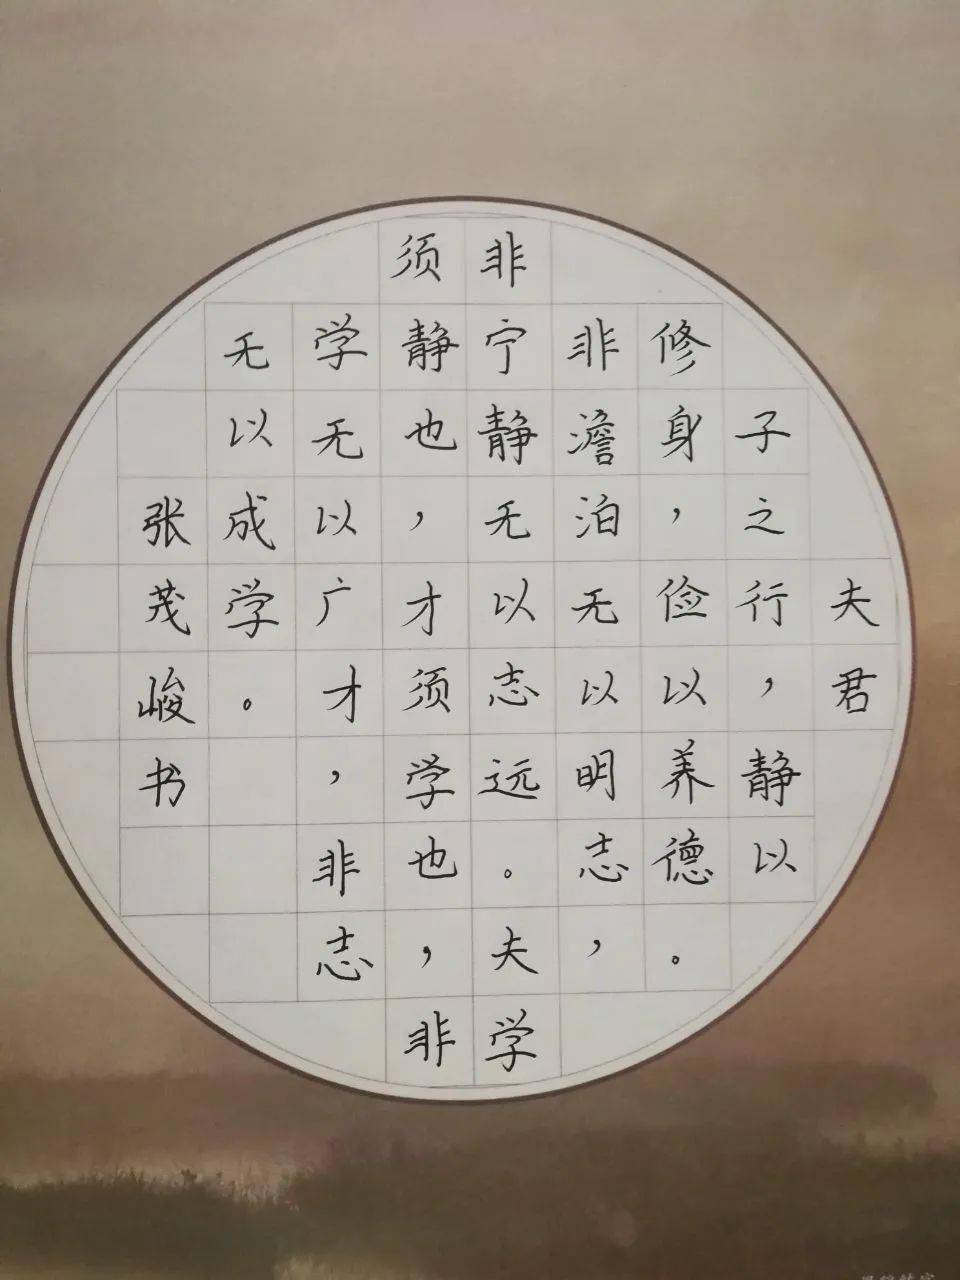 夫君
子之行，静以
修身，俭以养德。
非澹泊无以明志，
非宁静无以志远。夫学
须静也，才须学也，非
学无以广才，非志
无以成学。
张茂峻书